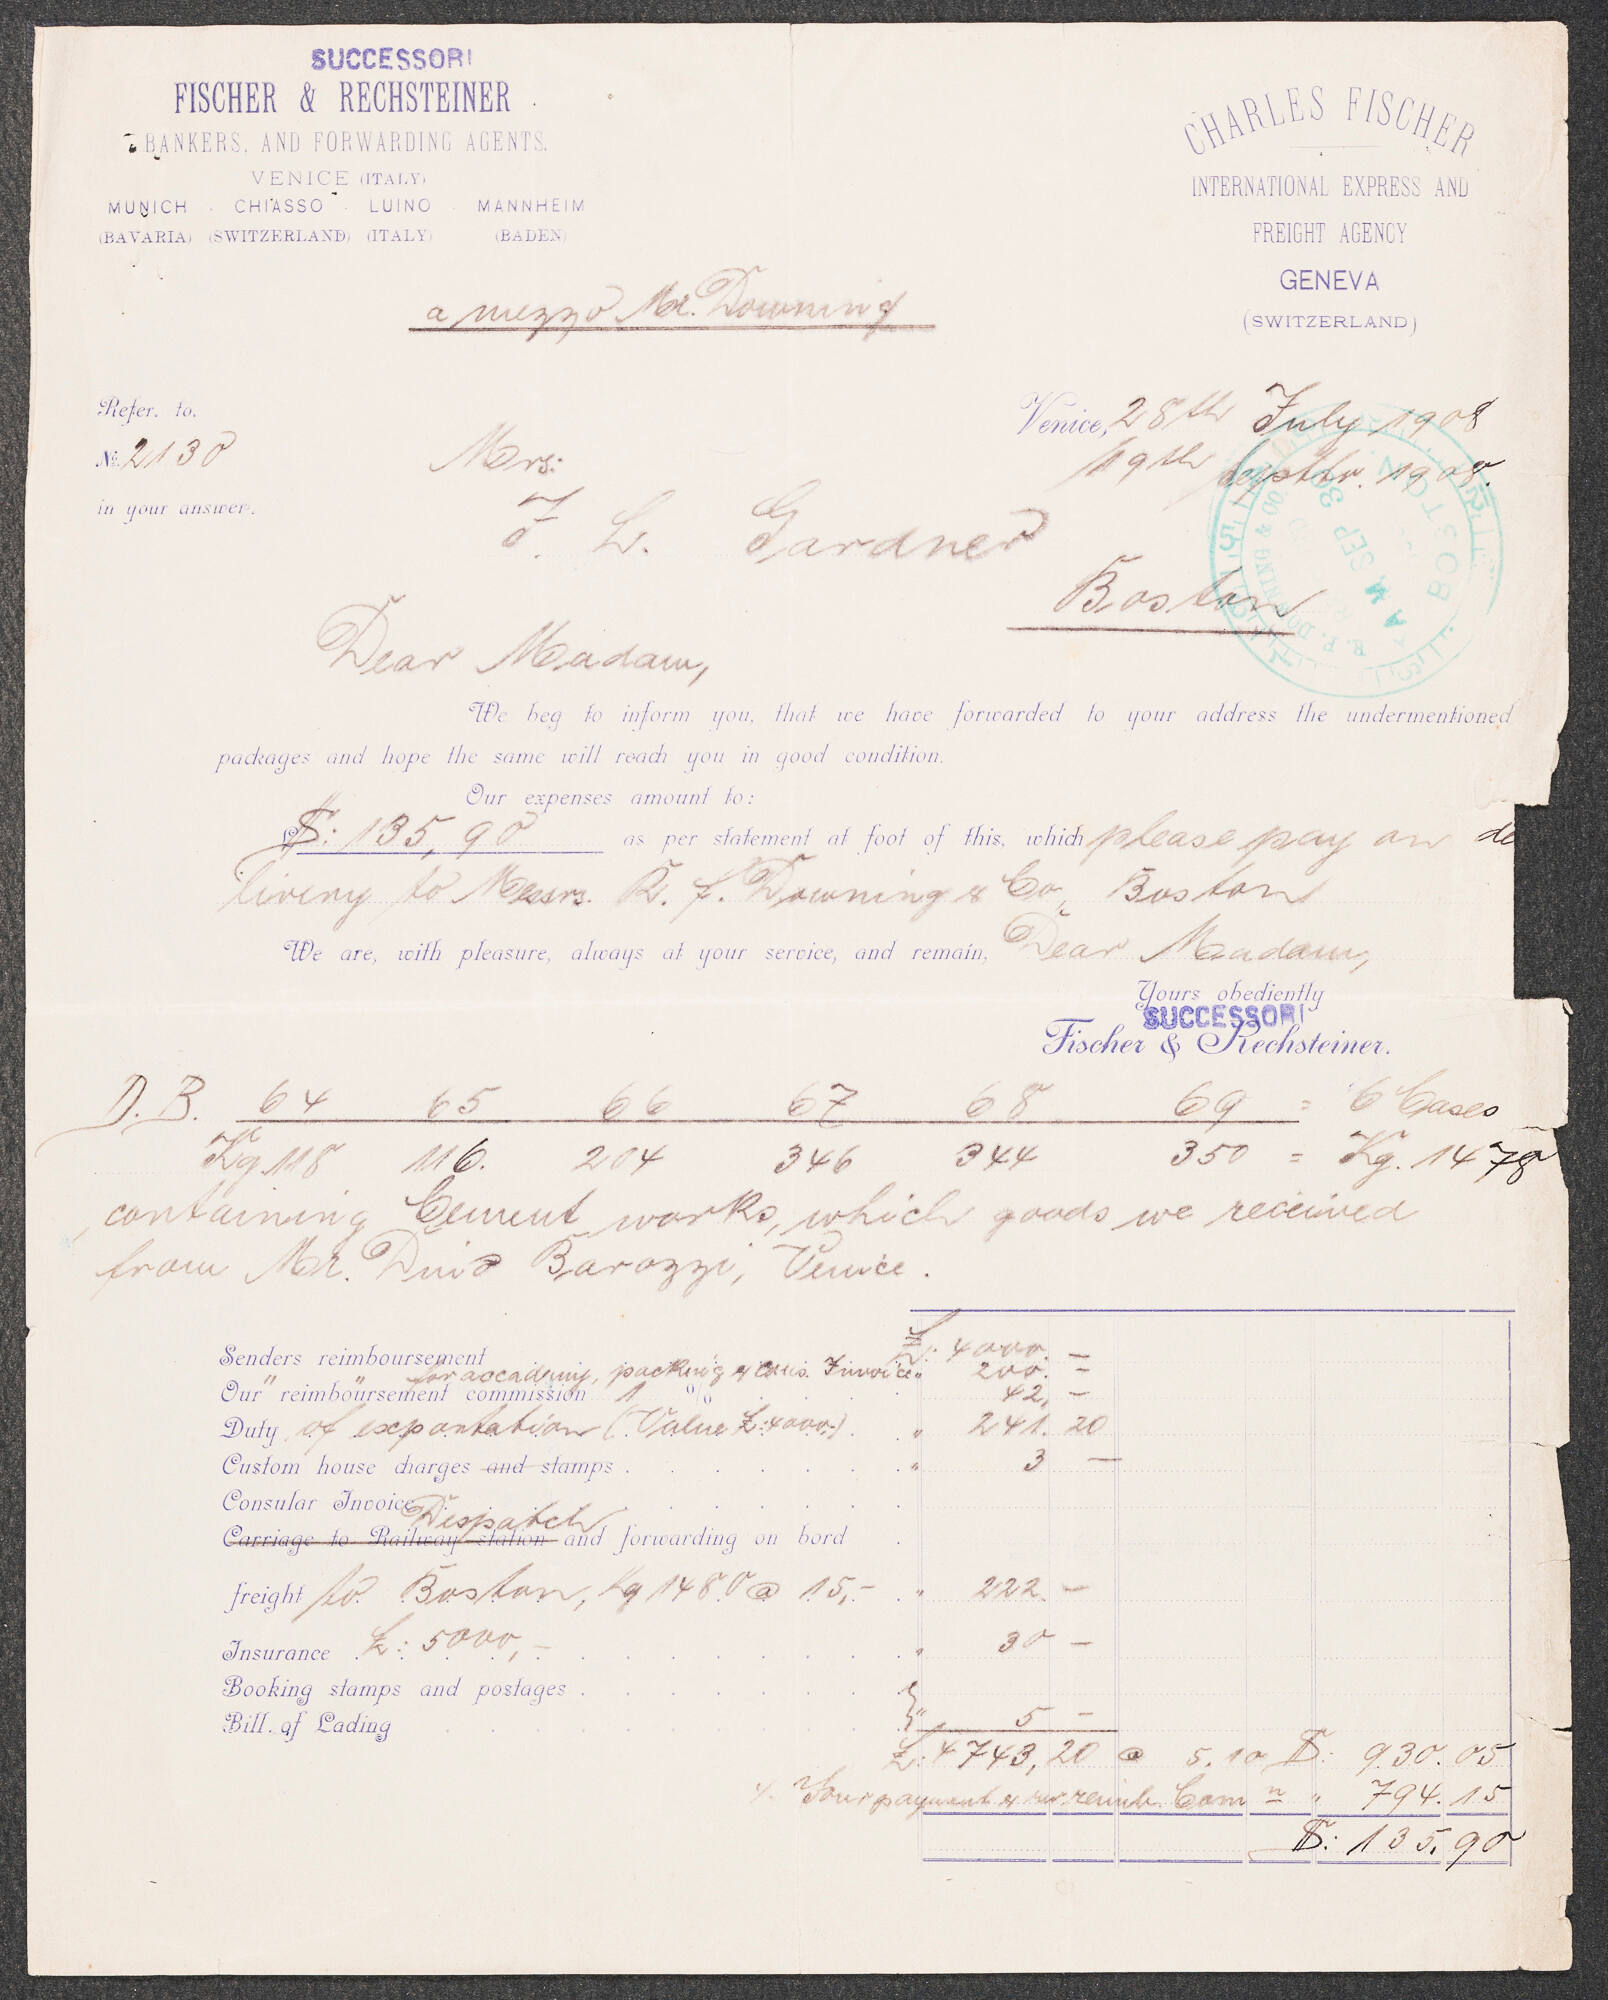 SUCCESSORI
FISCHER & RECHSTEINER
BANKERS, AND FORWARDING AGENTS.
VENICE (ITALY)
MUNICH · CHIASSO · LUINO · MANNHEIM
(BAVARIA) (SWITZERLAND) (ITALY) (BADEN)
CHARLES FISCHER
INTERNATIONAL EXPRESS AND
FREIGHT AGENCY
GENEVA
(SWITZERLAND)
a mezzo Mr. Downing
Refer. to.
№ 2130
in your answer.
Venice, 28th July 1908
19th Septbr. 1908.
BOSTON
SEP 30
R. F. DOWNING & CO
Mrs:
J. L. Gardner
Boston
Dear Madam,
We beg to inform you, that we have forwarded to your address the undermentioned
packages and hope the same will reach you in good condition.
Our expenses amount to:
$: 135,90 as per statement at foot of this, which please pay on de
livery to Messrs. R. F. Downing & Co, Boston
We are, with pleasure, always at your service, and remain, Dear Madam,
Yours obediently
SUCCESSORI
Fischer & Rechsteiner.
D. B. 64 65 66 67 68 69 = 6 Cases
Kg 118 116. 204 346 344 350 = Kg. 1478
containing Cement works, which goods we received
from Mr. Dino Barozzi, Venice.
Senders reimboursement £: 4000. —
for accademy, packing & cons. Invoice " 200. —
Our " reimboursement commission 1 % 42, —
Duty of exportation (Value £: 4000.-) " 241. 20
Custom house charges and stamps " 3 —
Consular Invoice
Despatch
Carriage to Railway station and forwarding on bord
freight to Boston, Kg 1480 @ 15,- " 222. —
Insurance £: 5000,- " 30 —
Booking stamps and postages
Bill. of Lading " 5 —
£: 4743,20 @ 5.10 $: 930.05
Your payment & our reimb. Com n " 794.15
$: 135.90